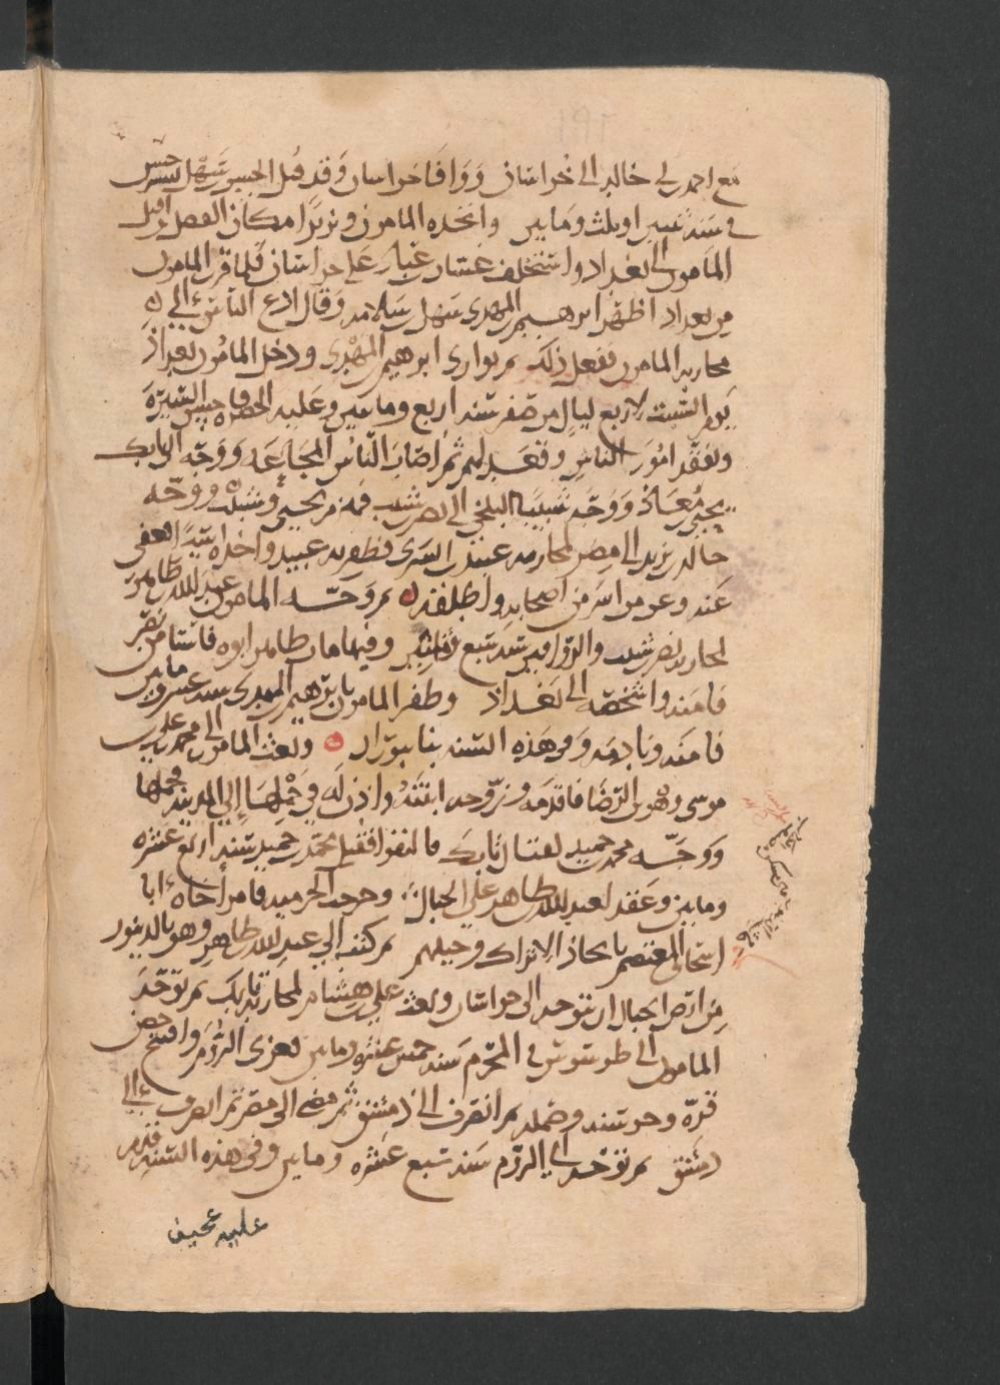 مع احمد بن ابي خالد الى خراسان ووافا خراسان وقد قبل الحسن بن سهل
في سنة ثنتين او ثلث ومايتين واتخذه المامون وزيرا مكان الفضل واقبل
المامون الى بغداد واستخلف غسان بن عباد على خراسان فلما قرب المامون
من بغداد اظهر ابرهيم بن المهدي سهل بن سلامة وقال ادع الناس الى
محاربة المامون ففعل ذلك ثم توارى ابرهيم بن المهدي ودخل المامون بغداد
يوم السبت لاربع ليال من صفر سنة اربع ومايتين وعليه الخضرة فاحسن السيرة
وتفقد امور الناس وقعد لهم ثم اصاب الناس المجاعة ووجه الى بابك
يحيى بن معاذ ووجه شبيبا البلخي الى نصر بن شبث فهزم يحيى وشبيب ووجه
خالد بن يزيد الى مصر لمحاربة عبيد بن السري فظفر به عبيد واخذه اسيرا فعفى
عنه وعن من اسر من اصحابه واطلقه ثم وجه المامون عبد الله بن طاهر
لمحاربة نصر بن شبث والزواقيل سنة سبع ومايتين وفيها مات طاهر ابوه فاستامن نصر
فامنه واشخصه الى بغداد وظفر المامون بابرهيم بن المهدي سنة عشر ومايتين
فامنه ونادمه وفي هذه السنة بنا ببوران وبعث المامون الى محمد بن علي بن
موسى وهو ابن الرضا فاقدمه وزوجه ابنته واذن له في حملها الى المدينة فحملها
ووجه محمد بن حميد لقتال بابك فالتقوا فقتل محمد بن حميد سنة اربع عشرة
ومايتين وعقد لعبد الله بن طاهر على الجبال وخرجت الخرمية فامر اخاه ابا
اسحاق المعتصم باتخاذ الاتراك وجلبهم ثم كتب الى عبد الله بن طاهر وهو بالدينور
من ارض الجبال ان يتوجه الى خراسان وبعث علي بن هشام لمحاربة بابك ثم توجه
المامون الى طرسوس في المحرم سنة خمس عشرة ومايتين لغزو الروم وافتتح حصن
قرة وخرشنة وصمله ثم انصرف الى دمشق ثم مضى الى مصر ثم انصرف الى
دمشق ثم توجه الى الروم سنة سبع عشرة ومايتين وفي هذه السنة قدم
عليه عجيف